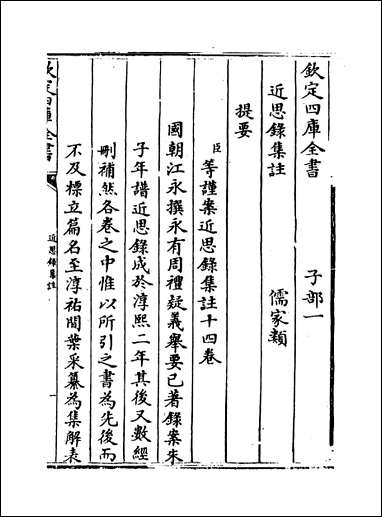 欽定四庫全書　子部一
近思錄集註　儒家類
提要
臣等謹案近思錄集註十四卷
國朝江永撰永有周禮疑義舉要已著錄案朱
子年譜近思錄成於淳熙二年其後又數經
刪補然各卷之中惟以所引之書為先後而
不及標立篇名至淳祐間葉采纂為集解表
欽定四庫全書
近思錄集註
一